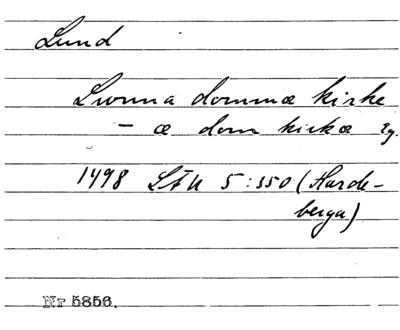 Lund
Lwnna dommæ kirke
— æ dom kirkæ 2g.
1498 LÄU 5:350 (Harde-
berga)
Nr 5856.